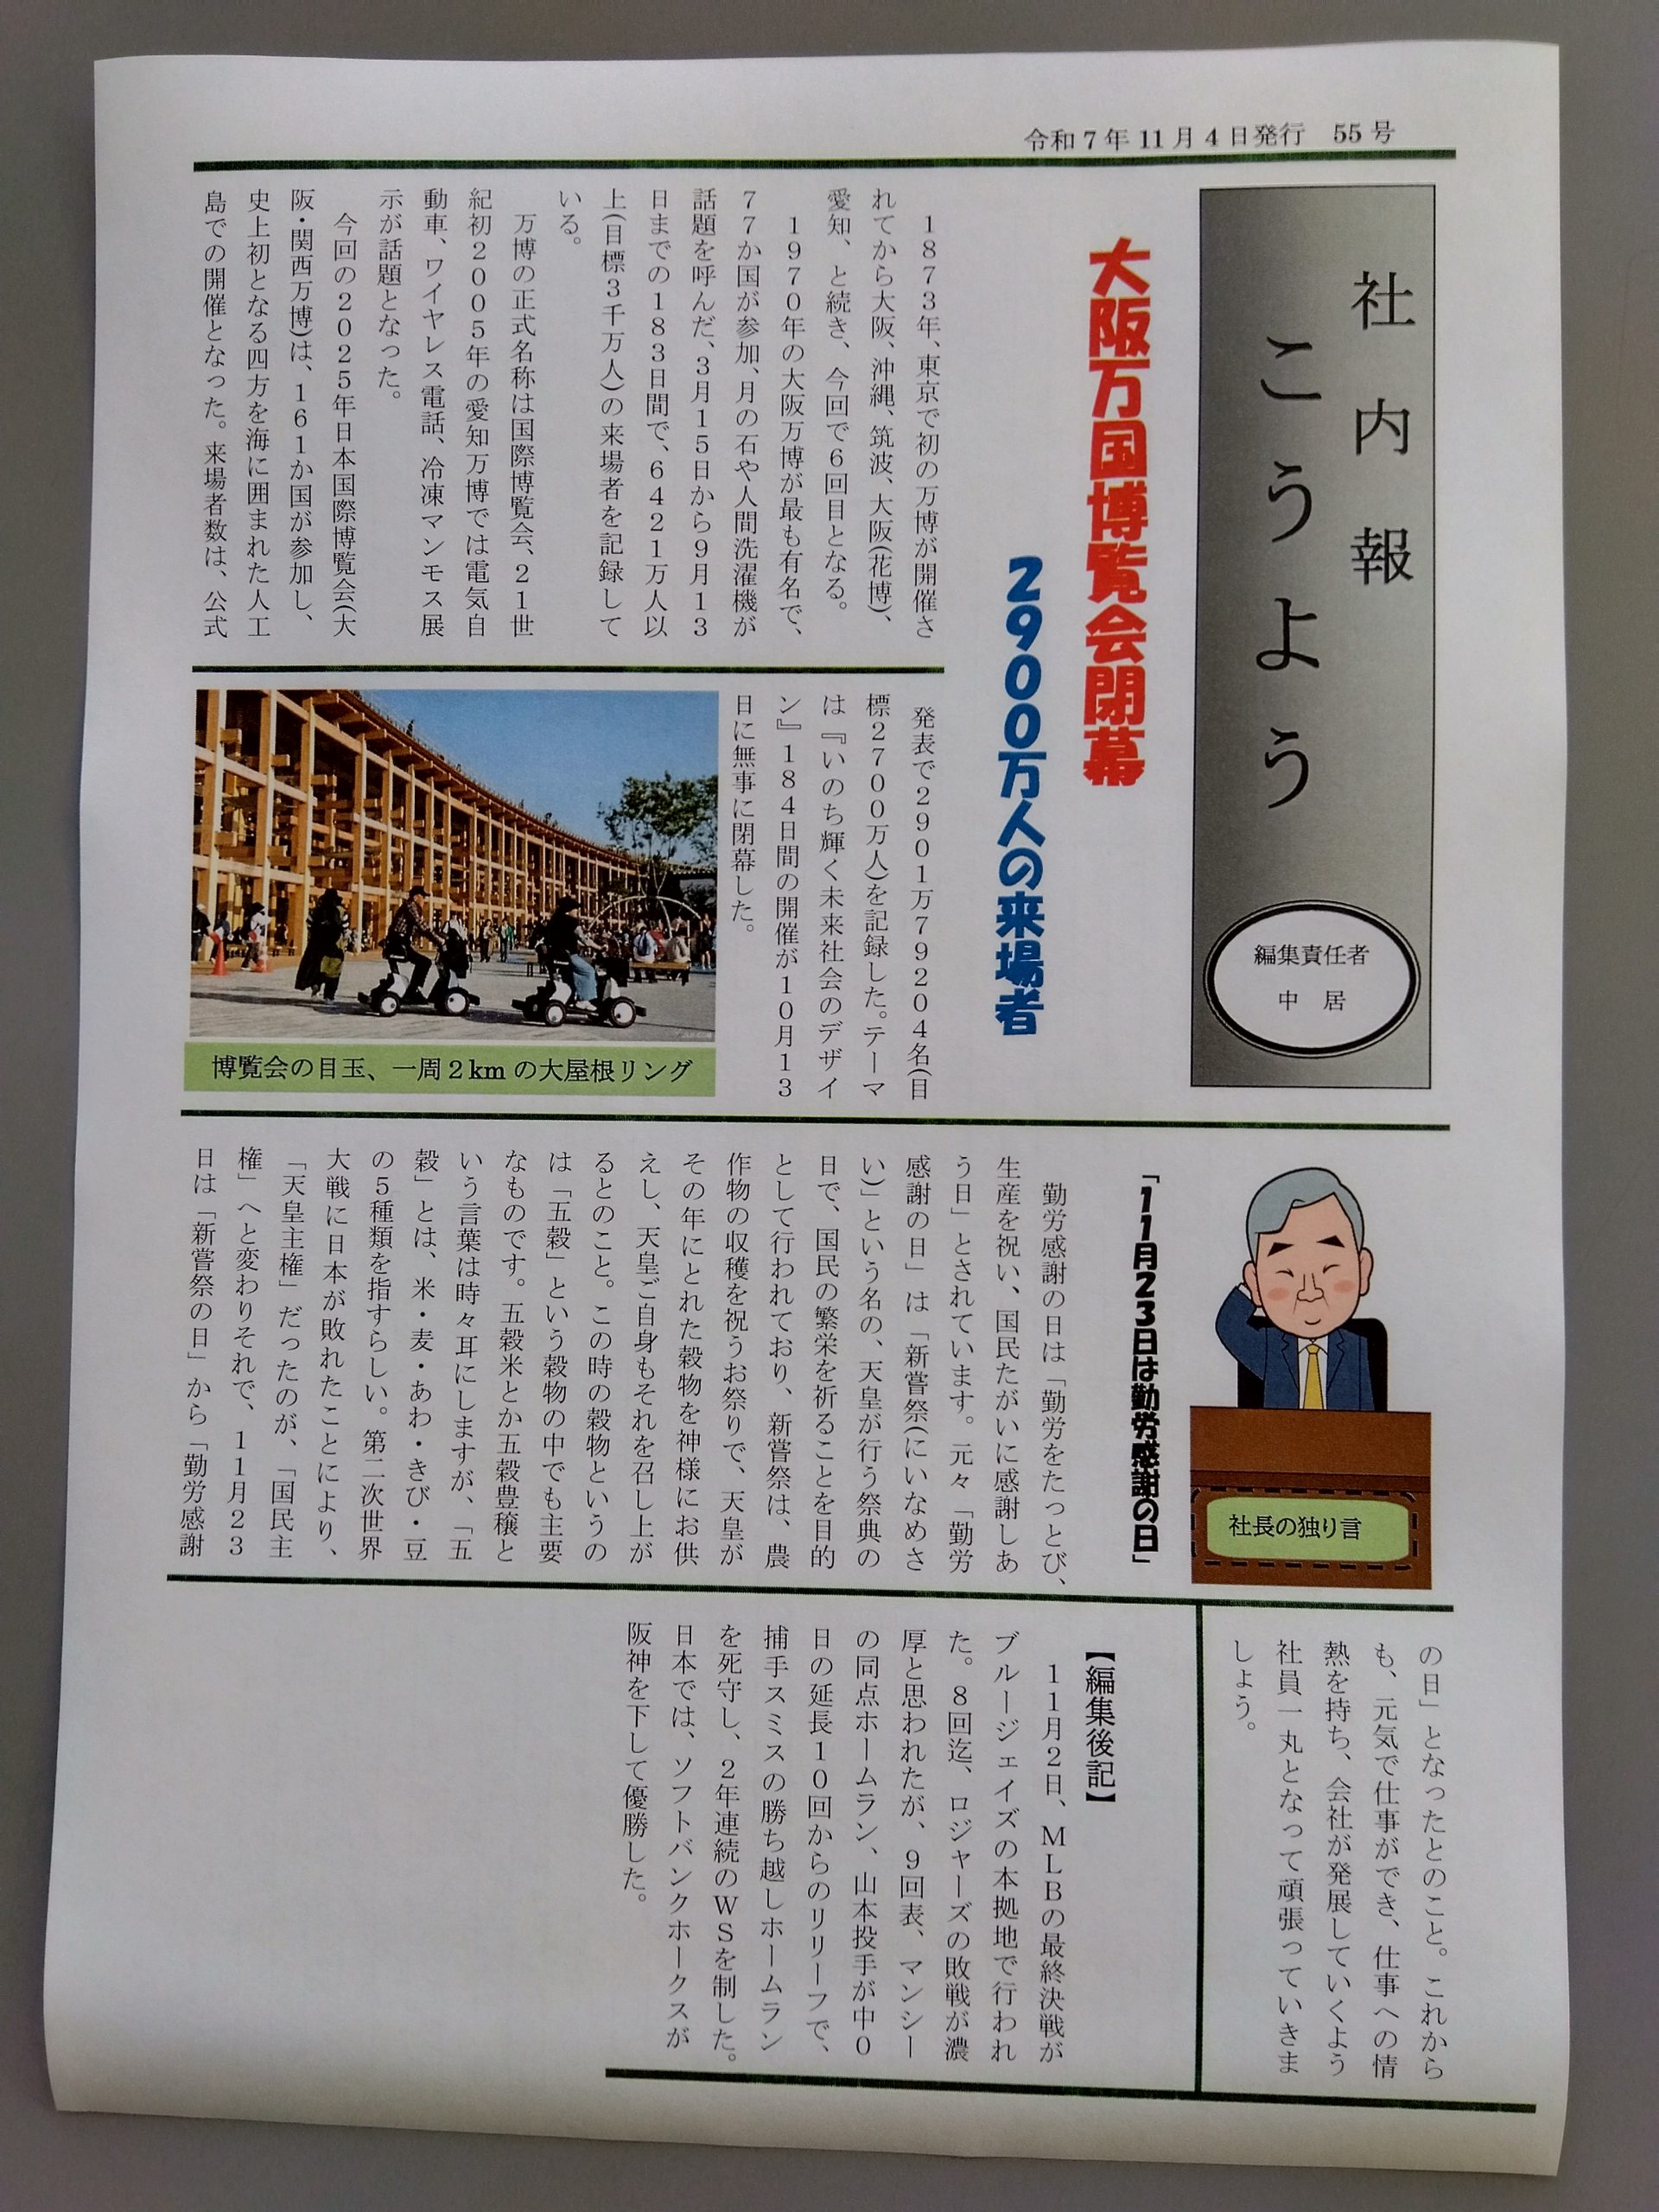 令和7年11月4日発行　55号
社内報
こうよう
編集責任者
中　居
大阪万国博覧会閉幕
2900万人の来場者
１８７３年、東京で初の万博が開催さ
れてから大阪、沖縄、筑波、大阪(花博)、
愛知、と続き、今回で６回目となる。
１９７０年の大阪万博が最も有名で、
７７か国が参加、月の石や人間洗濯機が
話題を呼んだ、３月１５日から９月１３
日までの１８３日間で、６４２１万人以
上(目標３千万人)の来場者を記録して
いる。
万博の正式名称は国際博覧会、２１世
紀初２００５年の愛知万博では電気自
動車、ワイヤレス電話、冷凍マンモス展
示が話題となった。
今回の２０２５年日本国際博覧会(大
阪・関西万博)は、１６１か国が参加し、
史上初となる四方を海に囲まれた人工
島での開催となった。来場者数は、公式
発表で２９０１万７９２０４名(目
標２７００万人)を記録した。テーマ
は『いのち輝く未来社会のデザイ
ン』１８４日間の開催が１０月１３
日に無事に閉幕した。
博覧会の目玉、一周2kmの大屋根リング
社長の独り言
「11月23日は勤労感謝の日」
勤労感謝の日は「勤労をたっとび、
生産を祝い、国民たがいに感謝しあ
う日」とされています。元々「勤労
感謝の日」は「新嘗祭(にいなめさ
い)」という名の、天皇が行う祭典の
日で、国民の繁栄を祈ることを目的
として行われており、新嘗祭は、農
作物の収穫を祝うお祭りで、天皇が
その年にとれた穀物を神様にお供
えし、天皇ご自身もそれを召し上が
るとのこと。この時の穀物というの
は「五穀」という穀物の中でも主要
なものです。五穀米とか五穀豊穣と
いう言葉は時々耳にしますが、「五
穀」とは、米・麦・あわ・きび・豆
の５種類を指すらしい。第二次世界
大戦に日本が敗れたことにより、
「天皇主権」だったのが、「国民主
権」へと変わりそれで、１１月２３
日は「新嘗祭の日」から「勤労感謝
の日」となったとのこと。これから
も、元気で仕事ができ、仕事への情
熱を持ち、会社が発展していくよう
社員一丸となって頑張っていきま
しょう。
【編集後記】
１１月２日、ＭＬＢの最終決戦が
ブルージェイズの本拠地で行われ
た。８回迄、ロジャーズの敗戦が濃
厚と思われたが、９回表、マンシー
の同点ホームラン、山本投手が中０
日の延長１０回からのリリーフで、
捕手スミスの勝ち越しホームラン
を死守し、２年連続のＷＳを制した。
日本では、ソフトバンクホークスが
阪神を下して優勝した。